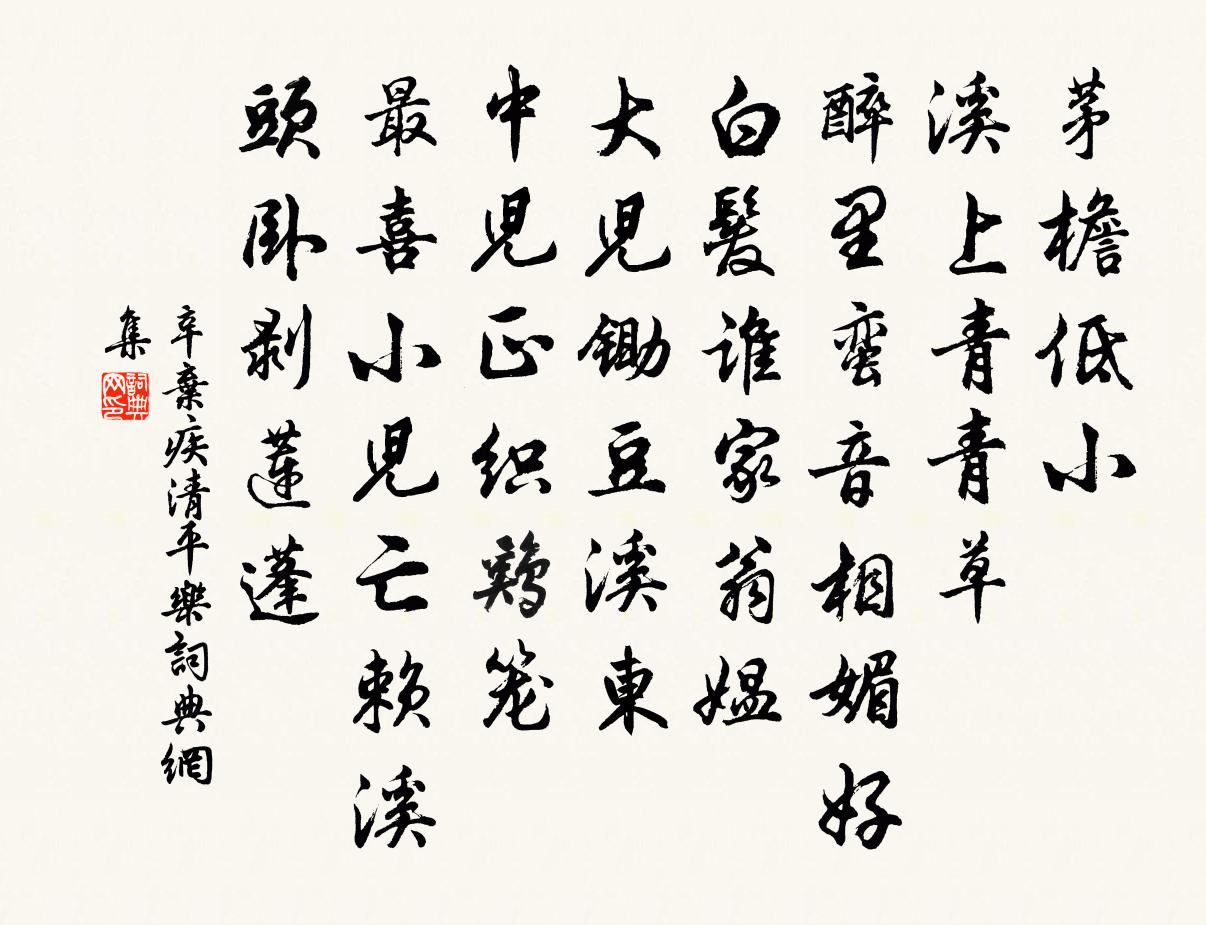 茅檐低小
溪上青青草
醉里蛮音相媚好
白髮誰家翁媪
大児鋤豆溪東
中児正织鷄笼
最喜小児亡赖溪
頭卧剥莲蓬
辛棄疾清平樂詞典網
集
詞典
网印